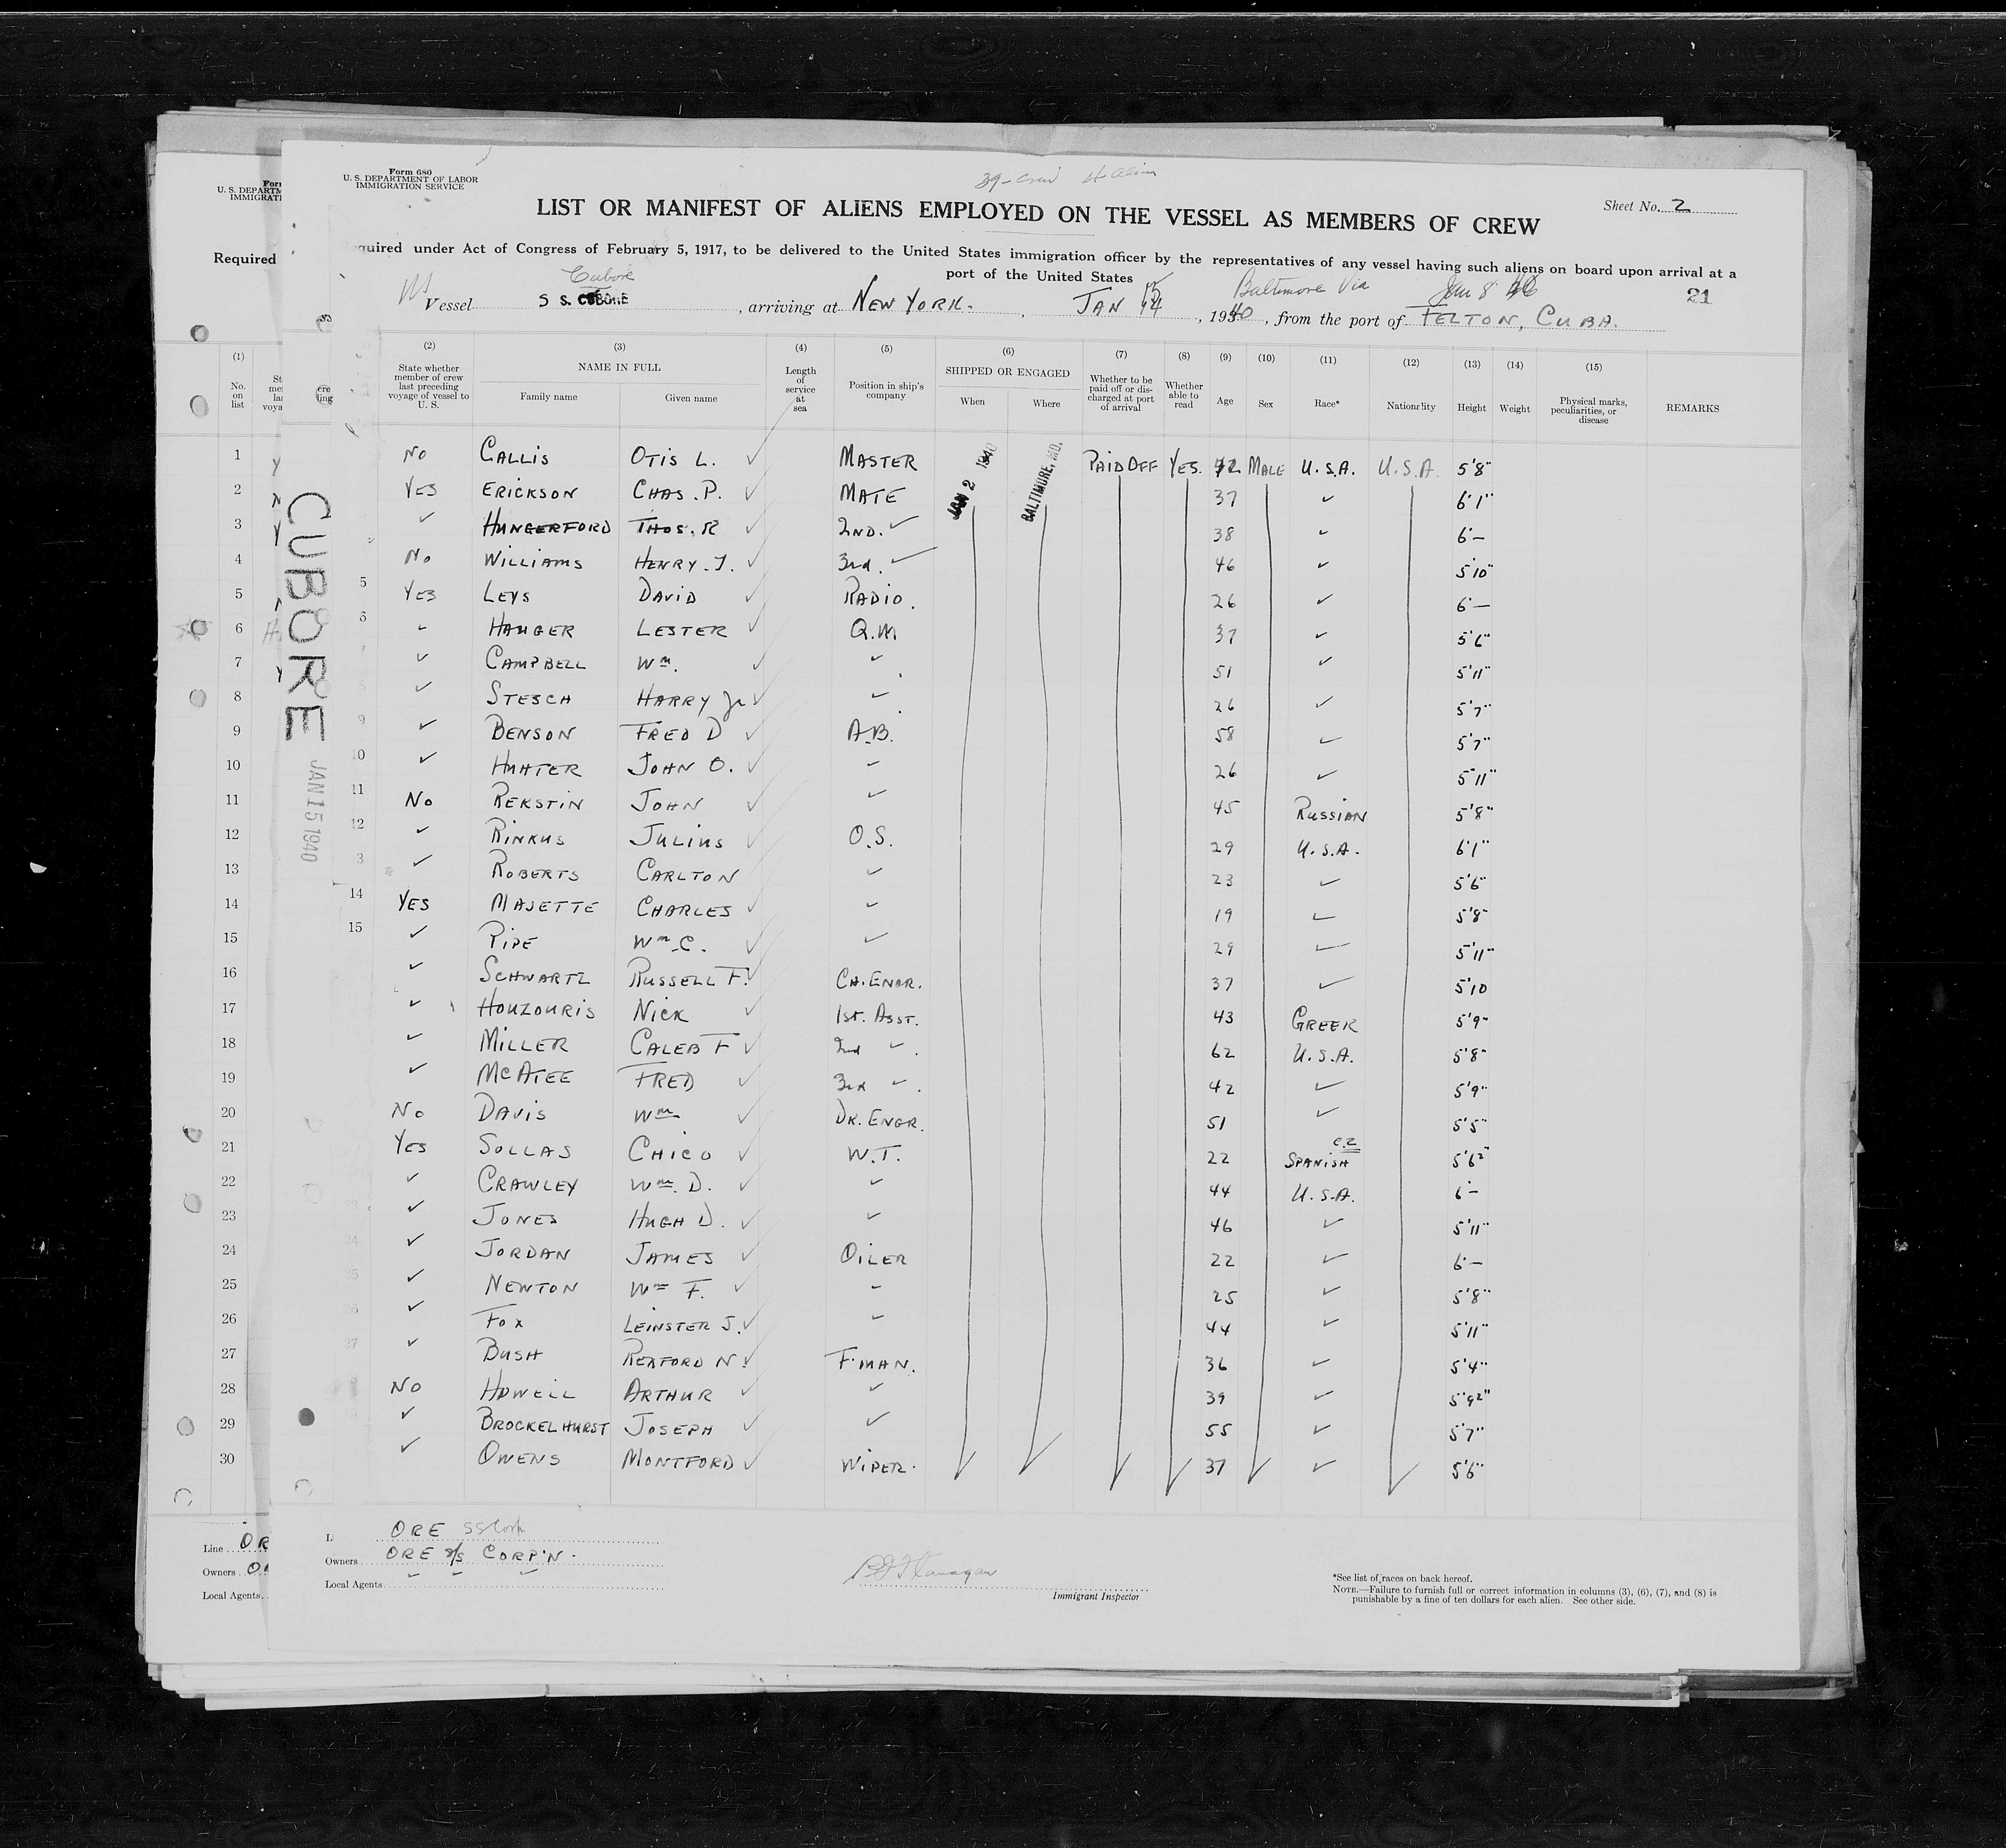 Form 680
U. S. DEPARTMENT OF LABOR
IMMIGRATION SERVICE
39-Crew
LIST OR MANIFEST OF ALIENS EMPLOYED ON THE VESSEL AS MEMBERS OF CREW
Sheet No. 2
quired under Act of Congress of February 5, 1917, to be delivered to the United States immigration officer by the representatives of any vessel having such aliens on board upon arrival at a
port of the United States
Required
Cubore
Baltimore Via Jan 8
21
Vessel S S. CUBORE, arriving at NEW YORK., JAN 14, 1940, from the port of FELTON, CUBA.
(1) (2) (3) (4) (5) (6) (7) (8) (9) (10) (11) (12) (13) (14) (15)
No. on list
State whether member of crew last preceding voyage of vessel to U. S.
NAME IN FULL
Family name Given name
Length of service at sea
Position in ship's company
SHIPPED OR ENGAGED
When Where
Whether to be paid off or discharged at port of arrival
Whether able to read
Age Sex Race* Nationality Height Weight
Physical marks, peculiarities, or disease
REMARKS
1 NO CALLIS OTIS L. ✓ MASTER JAN 2 1940 BALTIMORE, MD. PAID OFF YES. 42 MALE U.S.A. U.S.A. 5'8"
2 YES ERICKSON CHAS. P. ✓ MATE 37 ✓ 6'1"
3 ✓ HUNGERFORD THOS. R 2ND. ✓ 38 ✓ 6'–
4 NO WILLIAMS HENRY. J. ✓ 3rd. ✓ 46 ✓ 5'10"
5 YES LEYS DAVID ✓ RADIO. 26 ✓ 6'–
6 ✓ HAUGER LESTER ✓ Q.M. 37 ✓ 5'6"
7 ✓ CAMPBELL Wm. ✓ ✓ 51 ✓ 5'11"
8 ✓ STESCH HARRY Jr ✓ ✓ 26 ✓ 5'7"
9 ✓ BENSON FRED D ✓ A.B. 58 ✓ 5'7"
10 ✓ HUNTER JOHN O. ✓ ✓ 26 ✓ 5'11"
11 NO REKSTIN JOHN ✓ ✓ 45 RUSSIAN 5'8"
12 ✓ RINKUS JULIUS ✓ O.S. 29 U.S.A. 6'1"
13 ✓ ROBERTS CARLTON ✓ 23 ✓ 5'6"
14 YES MAJETTE CHARLES ✓ ✓ 19 ✓ 5'8"
15 ✓ PIPE Wm. C. ✓ ✓ 29 ✓ 5'11"
16 ✓ SCHWARTZ RUSSELL F. ✓ CH. ENGR. 37 ✓ 5'10
17 ✓ HOUZOURIS NICK ✓ 1ST. ASST. 43 GREEK 5'9"
18 ✓ MILLER CALEB F ✓ 2nd ✓. 62 U.S.A. 5'8"
19 ✓ McATEE FRED ✓ 3rd ✓. 42 ✓ 5'9"
20 NO DAVIS Wm ✓ DK. ENGR. 51 ✓ 5'5"
21 YES SOLLAS CHICO ✓ W.T. 22 C.Z SPANISH 5'6½"
22 ✓ CRAWLEY Wm. D. ✓ ✓ 44 U.S.A. 6'–
23 ✓ JONES HUGH D. ✓ ✓ 46 ✓ 5'11"
24 ✓ JORDAN JAMES ✓ OILER 22 ✓ 6'–
25 ✓ NEWTON Wm F. ✓ ✓ 25 ✓ 5'8"
26 ✓ FOX LEINSTER J. ✓ ✓ 44 ✓ 5'11"
27 ✓ BUSH REXFORD N. ✓ F'MAN. 36 ✓ 5'4"
28 NO HOWELL ARTHUR ✓ ✓ 39 ✓ 5'9½"
29 ✓ BROCKELHURST JOSEPH ✓ ✓ 55 ✓ 5'7"
30 ✓ OWENS MONTFORD ✓ WIPER. 37 ✓ 5'6"
CUBORE JAN 15 1940
Line ORE
Owners ORE S/S CORP'N.
Local Agents
Immigrant Inspector
*See list of races on back hereof.
NOTE.—Failure to furnish full or correct information in columns (3), (6), (7), and (8) is
punishable by a fine of ten dollars for each alien. See other side.